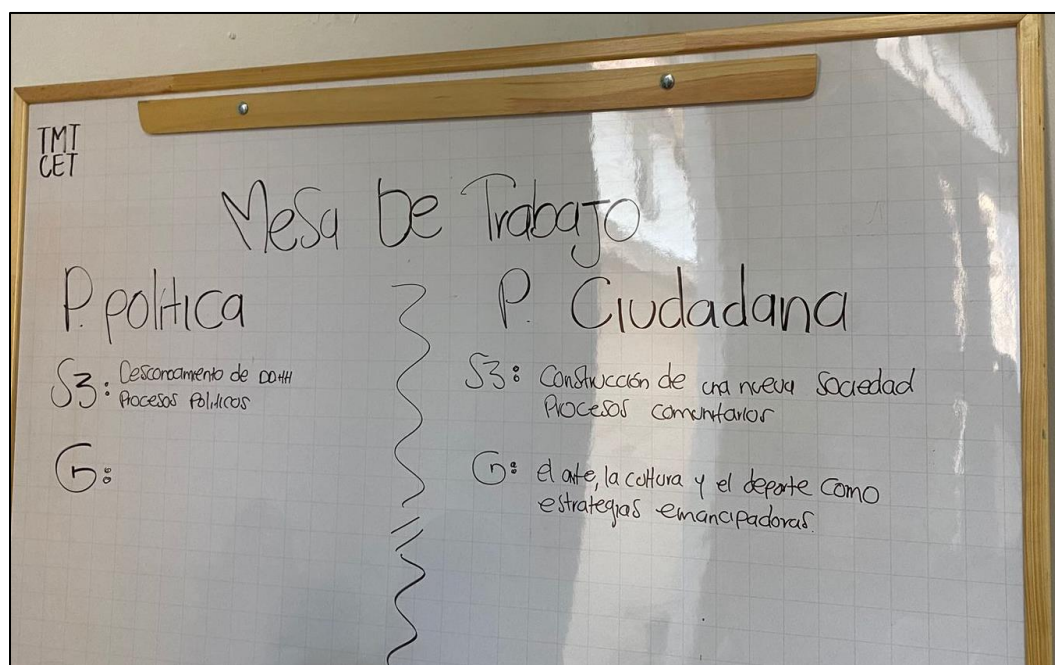 TMT
CET
Mesa De Trabajo
P. política
S3: Desconocamiento de DDHH
Procesos Políticos
G:
P. Ciudadana
S3: Construcción de una nueva Sociedad
Procesos comunitarios
G: el arte, la cultura y el deporte como
estrategias emancipadoras.